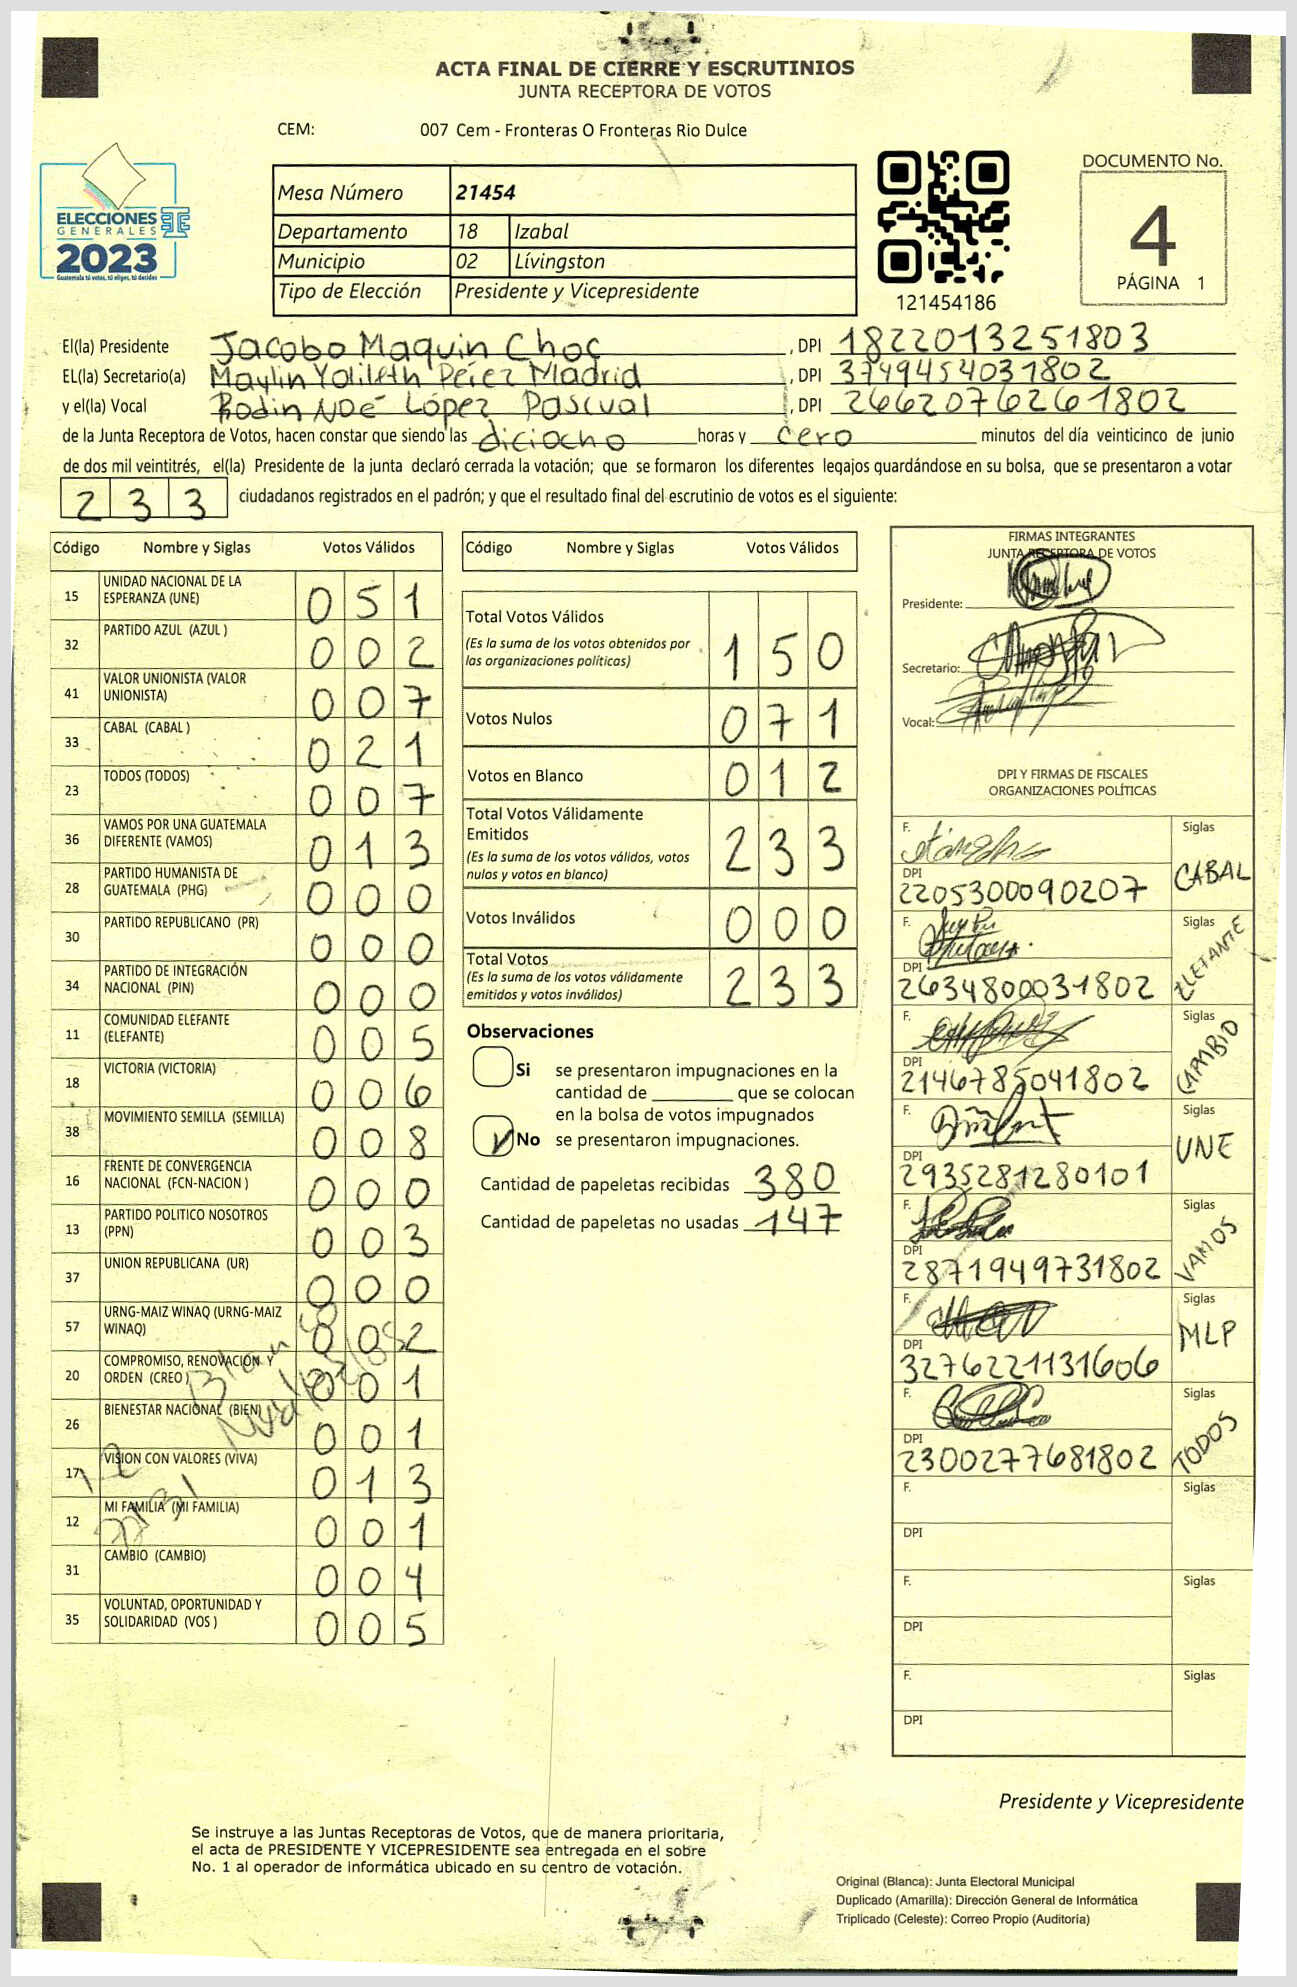 ACTA FINAL DE CIERRE Y ESCRUTINIOS
JUNTA RECEPTORA DE VOTOS
CEM: 007 Cem - Fronteras O Fronteras Rio Dulce
ELECCIONES
GENERALES
2023
Guatemala tú votas, tú eliges, tú decides
Mesa Número 21454
Departamento 18 Izabal
Municipio 02 Lívingston
Tipo de Elección Presidente y Vicepresidente
121454186
DOCUMENTO No.
4
PÁGINA 1
El(la) Presidente Jacobo Maquin Choc, DPI 1822013251803
EL(la) Secretario(a) Maylin Yolileth Pérez Madrid, DPI 3749454031802
y el(la) Vocal Rodin Noé López Pascual, DPI 2662076261802
de la Junta Receptora de Votos, hacen constar que siendo las diciocho horas y cero minutos del día veinticinco de junio
de dos mil veintitrés, el(la) Presidente de la junta declaró cerrada la votación; que se formaron los diferentes legajos guardándose en su bolsa, que se presentaron a votar
233 ciudadanos registrados en el padrón; y que el resultado final del escrutinio de votos es el siguiente:
Código Nombre y Siglas Votos Válidos
15 UNIDAD NACIONAL DE LA ESPERANZA (UNE) 051
32 PARTIDO AZUL (AZUL ) 002
41 VALOR UNIONISTA (VALOR UNIONISTA) 007
33 CABAL (CABAL ) 021
23 TODOS (TODOS) 007
36 VAMOS POR UNA GUATEMALA DIFERENTE (VAMOS) 013
28 PARTIDO HUMANISTA DE GUATEMALA (PHG) 000
30 PARTIDO REPUBLICANO (PR) 000
34 PARTIDO DE INTEGRACIÓN NACIONAL (PIN) 000
11 COMUNIDAD ELEFANTE (ELEFANTE) 005
18 VICTORIA (VICTORIA) 006
38 MOVIMIENTO SEMILLA (SEMILLA) 008
16 FRENTE DE CONVERGENCIA NACIONAL (FCN-NACION ) 000
13 PARTIDO POLITICO NOSOTROS (PPN) 003
37 UNION REPUBLICANA (UR) 000
57 URNG-MAIZ WINAQ (URNG-MAIZ WINAQ) 002
20 COMPROMISO, RENOVACIÓN Y ORDEN (CREO) 001
26 BIENESTAR NACIONAL (BIEN) 001
17 VISION CON VALORES (VIVA) 013
12 MI FAMILIA (MI FAMILIA) 001
31 CAMBIO (CAMBIO) 004
35 VOLUNTAD, OPORTUNIDAD Y SOLIDARIDAD (VOS ) 005
Código Nombre y Siglas Votos Válidos
Total Votos Válidos 150
(Es la suma de los votos obtenidos por
las organizaciones políticas)
Votos Nulos 071
Votos en Blanco 012
Total Votos Válidamente
Emitidos 233
(Es la suma de los votos válidos, votos
nulos y votos en blanco)
Votos Inválidos 000
Total Votos 233
(Es la suma de los votos válidamente
emitidos y votos inválidos)
Observaciones
Si se presentaron impugnaciones en la
cantidad de ________ que se colocan
en la bolsa de votos impugnados
No se presentaron impugnaciones.
Cantidad de papeletas recibidas 380
Cantidad de papeletas no usadas 147
FIRMAS INTEGRANTES
JUNTA RECEPTORA DE VOTOS
Presidente:
Secretario:
Vocal:
DPI Y FIRMAS DE FISCALES
ORGANIZACIONES POLÍTICAS
F. Siglas
DPI 2205300090207 CABAL
F. Siglas
DPI 2634800031802
F. Siglas
DPI 2146785041802 CAMBIO
F. Siglas
DPI 2935281280101 UNE
F. Siglas
DPI 2871949731802 VAMOS
F. Siglas
DPI 3276221131606 MLP
F.
DPI 2300277681802 TODOS
F. Siglas
DPI
F. Siglas
DPI
F. Siglas
DPI
Presidente y Vicepresidente
Se instruye a las Juntas Receptoras de Votos, que de manera prioritaria,
el acta de PRESIDENTE Y VICEPRESIDENTE sea entregada en el sobre
No. 1 al operador de informática ubicado en su centro de votación.
Original (Blanca): Junta Electoral Municipal
Duplicado (Amarilla): Dirección General de Informática
Triplicado (Celeste): Correo Propio (Auditoría)